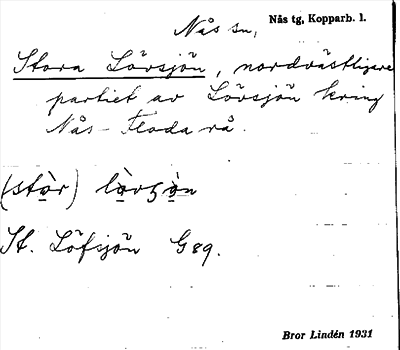 Nås sn, Nås tg, Kopparb. l.
Stora Lövsjön, nordvästligare
partiet av Lövsjön kring
Nås-Floda rå.
(stòr) lòvʒòn
St. Löfsjön G 89.
Bror Lindén 1931